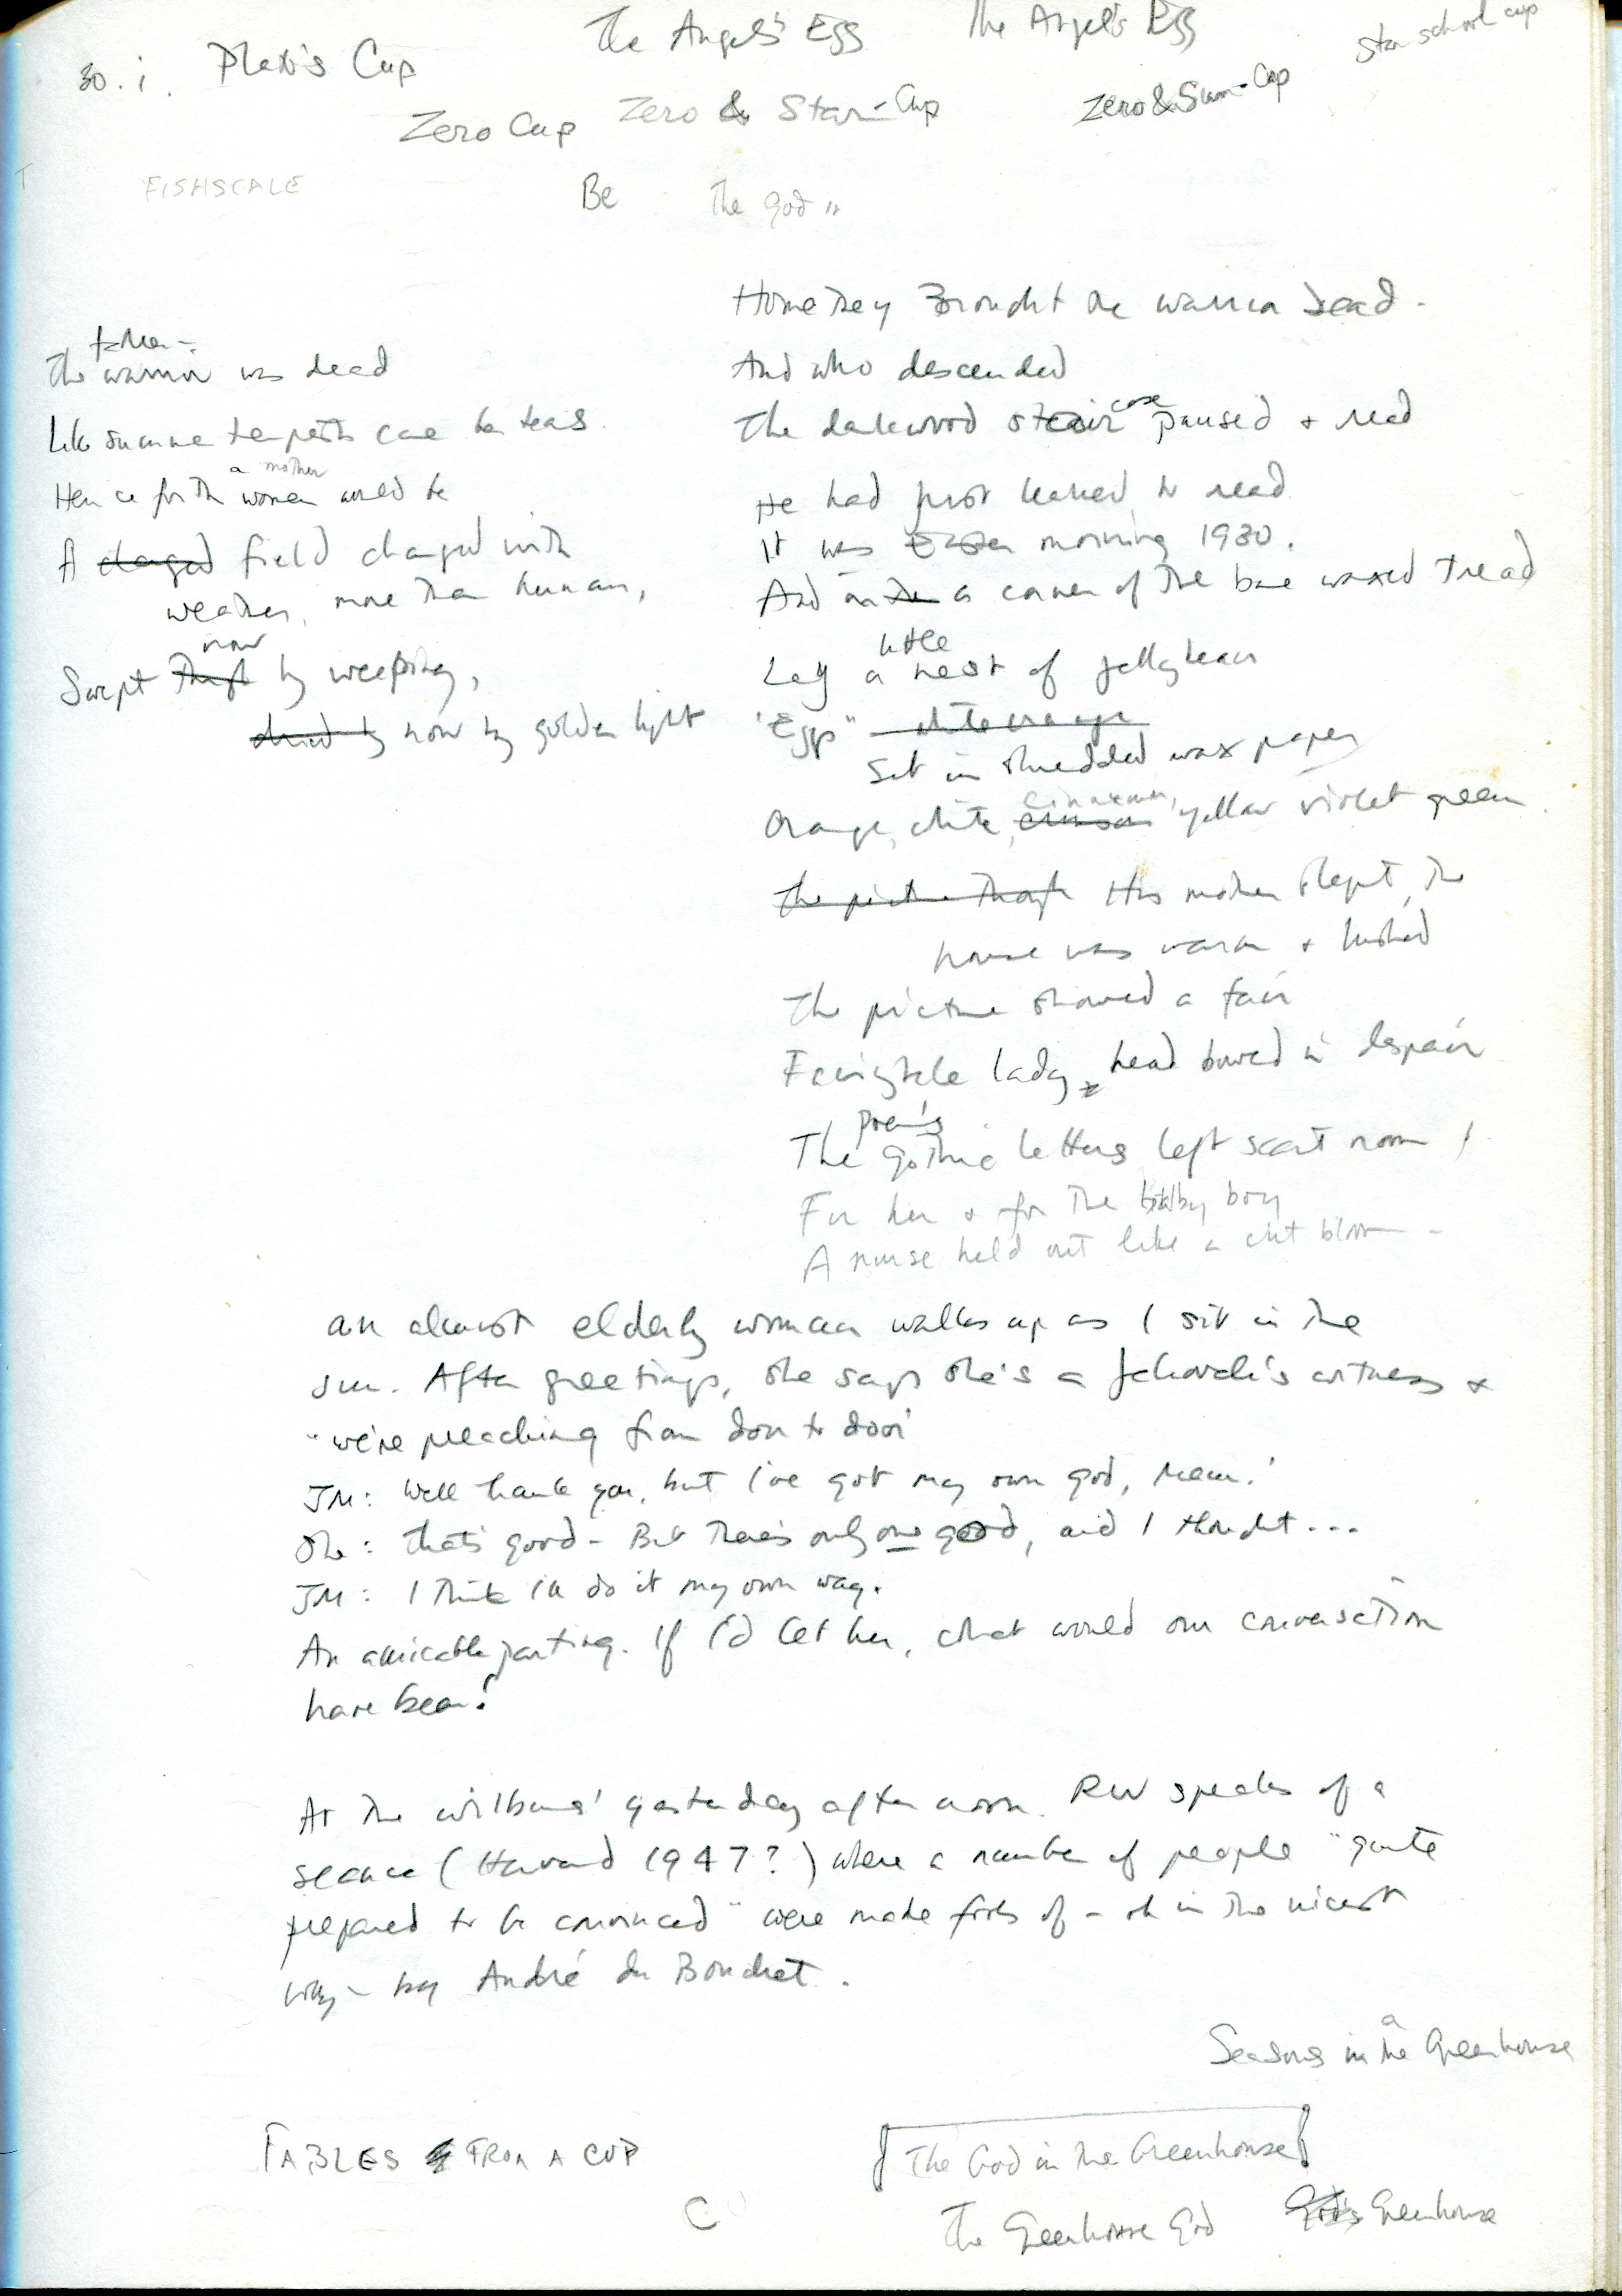 30.i. Plato's Cup
The Angel's Egg
The Angel's Egg
Star school cup
Zero Cup
Zero & Star-Cup
Zero & Sum-Cup
FISHSCALE
Be
The God in
The warrior was dead
Like summer tempests came her tears.
a mother
Hence forth women would be
A charged field charged with
weather, more than human,
now
Swept by weeping,
dried by now by golden light
Home they Brought the warrior dead.
And who descended
case
The darkwood stair paused & read
He had just learned to read
It was Easter morning 1930.
And in the a corner of the bare waxed tread
little
Lay a nest of jellybean
"Eggs" white orange
Set in shredded wax paper
cinnamon,
Orange, white, crimson yellow violet green.
The picture though His mother slept, the
house was warm & hushed
The picture showed a fair
Fairytale lady, head bowed in despair
poem's
The Gothic letters left scant room
For her & for the baby boy
A nurse held out like a cut bloom -
An almost elderly woman walks up as I sit in the
sun. After greetings, she says she's a Jehovah's witness &
"we're preaching from door to door"
JM: Well thank you, but I've got my own god, Mam.'
She: that's good - But there's only one god, and I thought...
JM: I think I'll do it my own way.
An amicable parting. If I'd let her, what would our conversation
have been?
At the Wilburs' yesterday afternoon. RW speaks of a
seance (Harvard 1947?) where a number of people "quite
prepared to be convinced" were made fools of - oh in the nicest
way - by André du Bouchet.
a
Seasons in the Greenhouse
FABLES FROM A CUP
The God in the Greenhouse
C
The Greenhouse God
God's Greenhouse